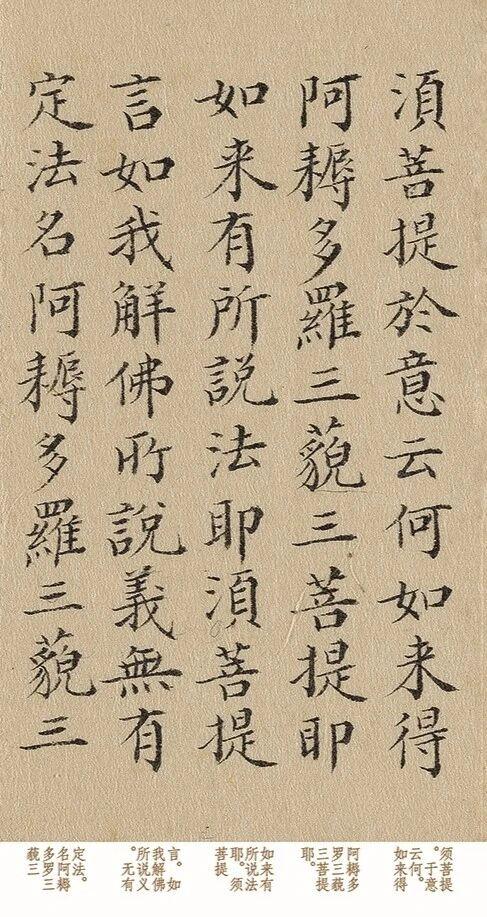 湏菩提於意云何如来得
阿耨多羅三藐三菩提耶
如来有所説法耶湏菩提
言如我解佛所說義無有
定法名阿耨多羅三藐三
须菩提
。于意
云何。
如来得
阿耨多
罗三藐
三菩提
耶。
如来有
所说法
耶。须
菩提
言。如
我解佛
所说义
。无有
定法。
名阿耨
多罗三
藐三